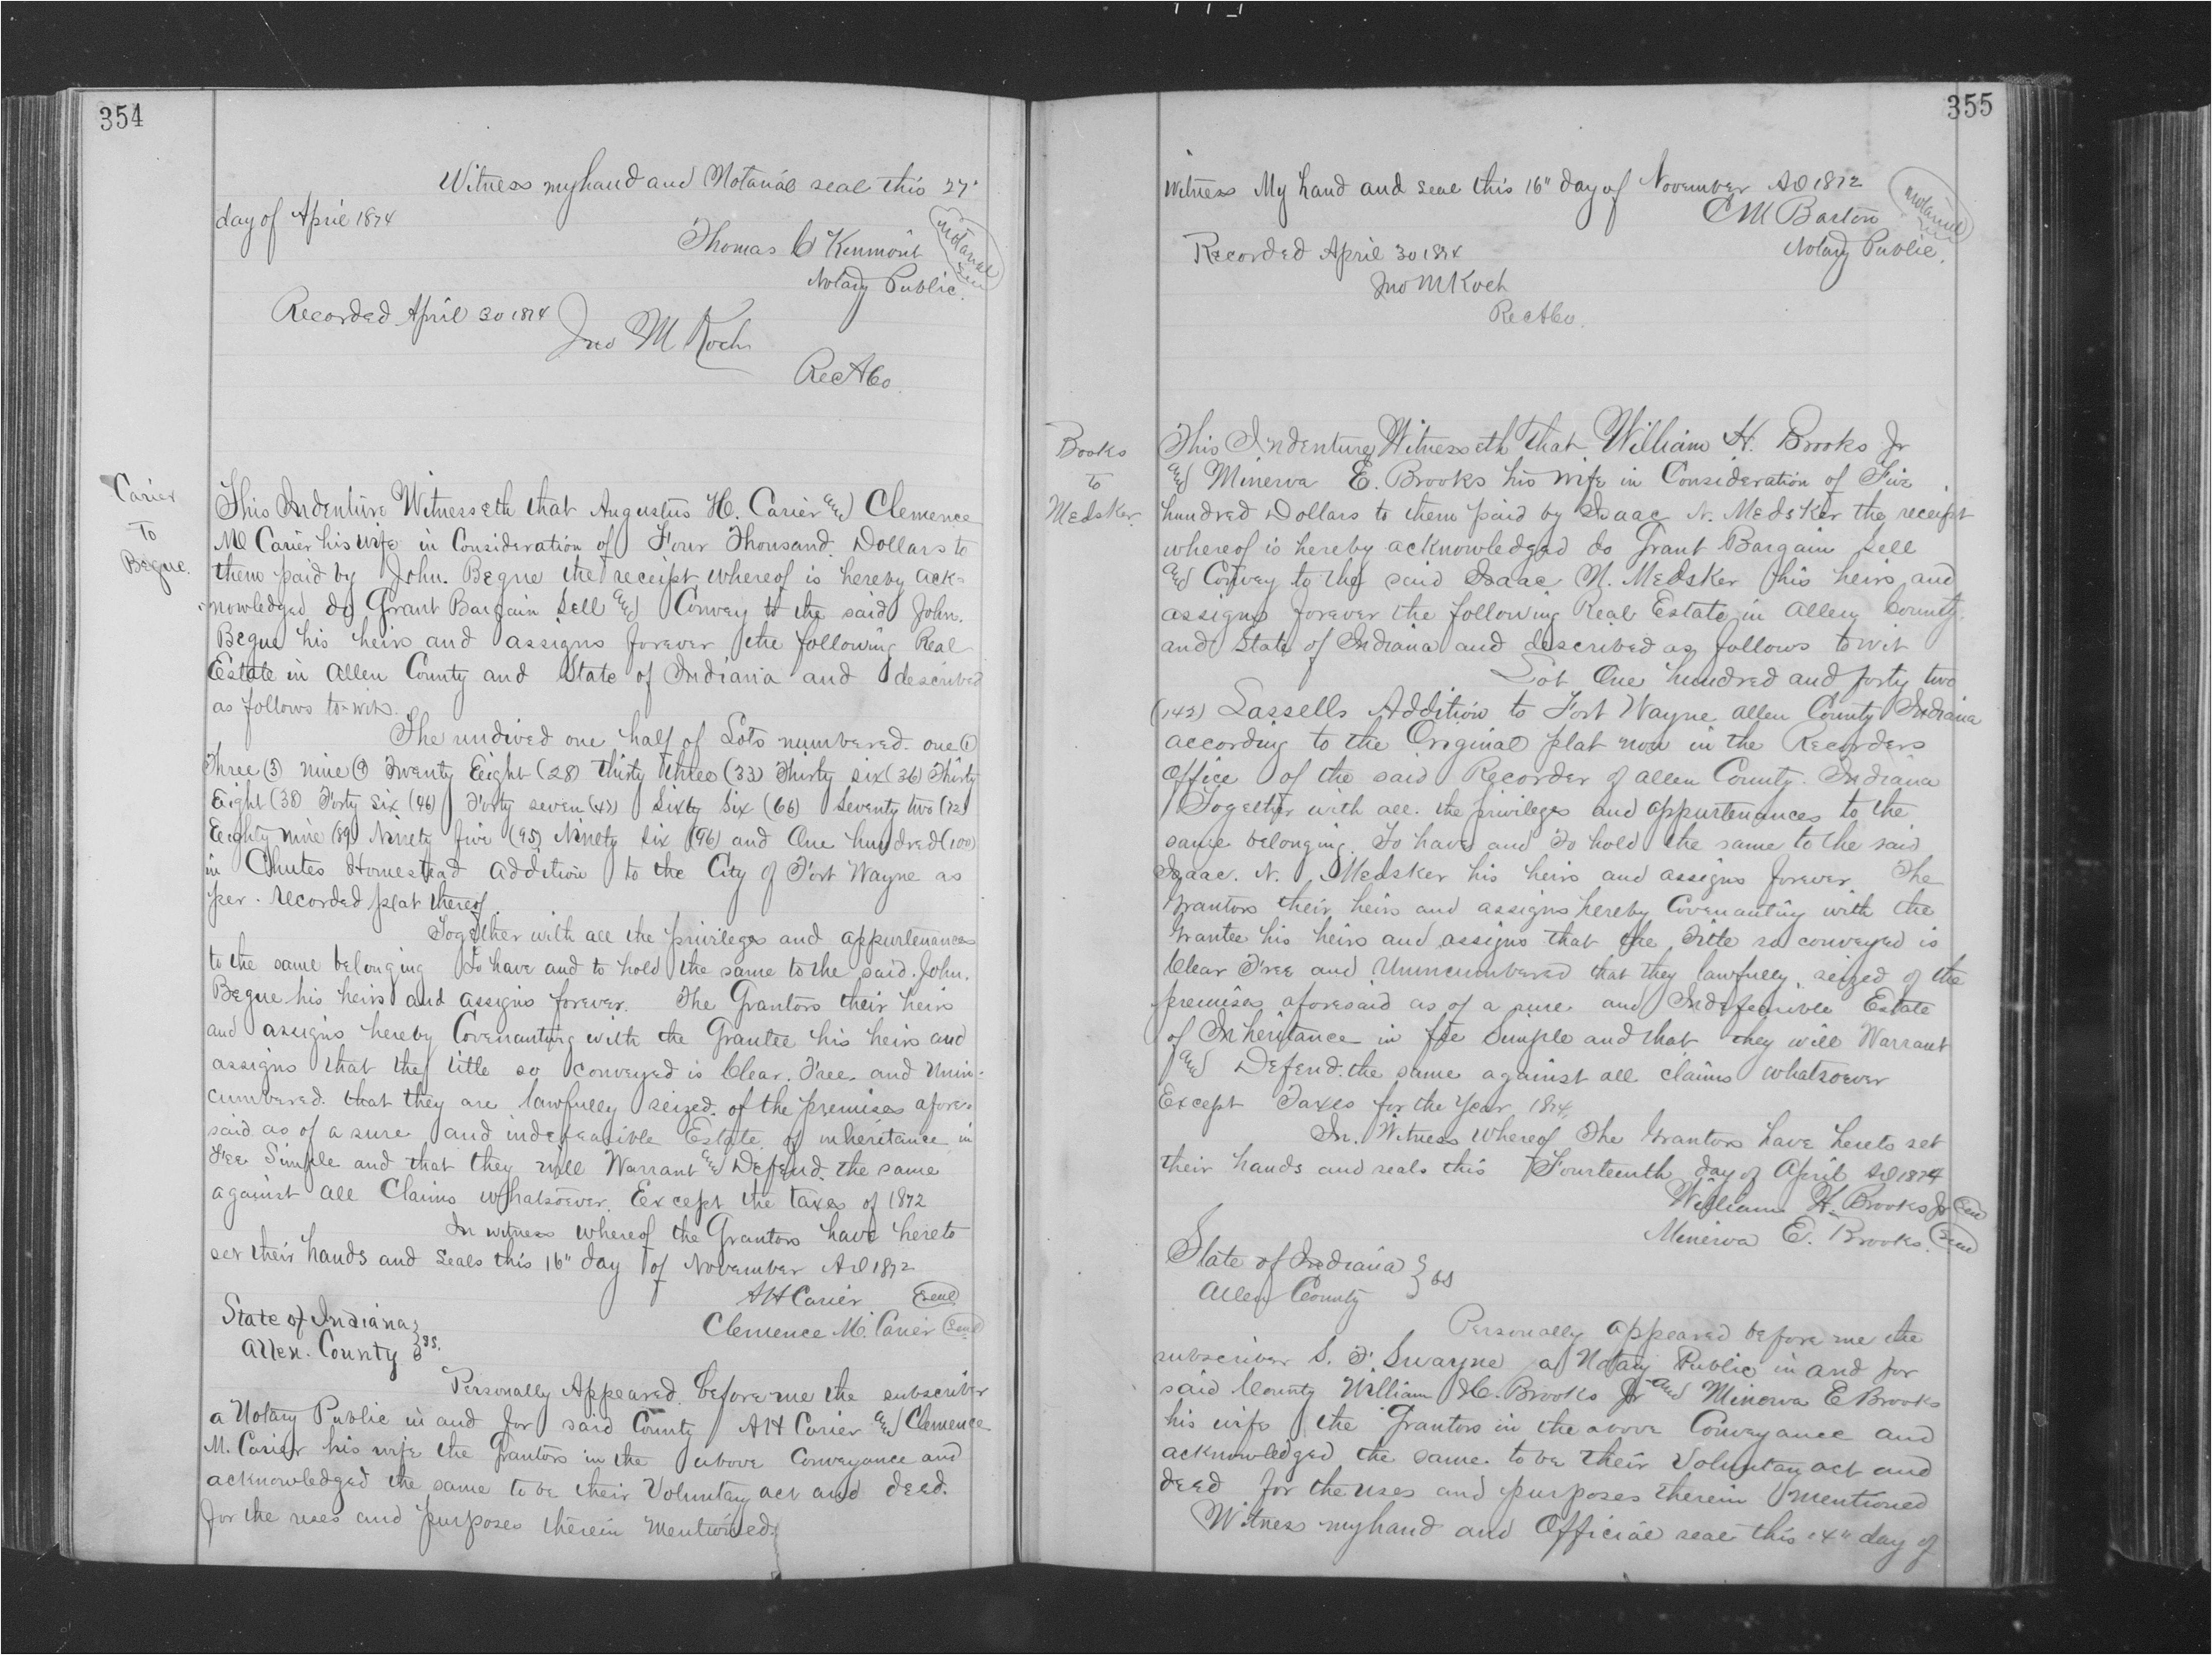 354
Witness my hand and Notarial seal this 27"
day of April 1874
Thomas C Kinmont
Notarial
Seal
Notary Public.
Recorded April 30 1874
Jno M Koch
Rec A Co.
Carier
To
Begue.
This Indenture Witnesseth that Augustus H. Carier and Clemence
M Carier his wife in Consideration of Four Thousand Dollars to
them paid by John. Begue the receipt whereof is hereby ack-
-nowledged do Grant Bargain Sell and Convey to the said John.
Begue his heirs and assigns forever the following Real
Estate in Allen County and State of Indiana and described
as follows to-wit.
The undived one half of Lots numbered one (1)
Three (3) nine (9) Twenty Eight (28) Thirty three (33) Thirty six (36) Thirty
Eight (38) Forty six (46) Forty seven (47) Sixty six (66) Seventy two (72)
Eighty nine (89) Ninety five (95) Ninety six (96) and One hundred (100)
in Chutes Homestead addition to the City of Fort Wayne as
per. recorded plat thereof
Together with all the privileges and appurtenances
to the same belonging To have and to hold the same to the said. John.
Begue his heirs and assigns forever. The Grantors their heirs
and assigns hereby Covenanting with the Grantee his heirs and
assigns that the title so conveyed is Clear. Free. and Unin-
cumbered. that they are lawfully seized. of the premises afore-
said as of a sure and indefeasible Estate of inheritance in
Fee Simple and that they will Warrant and Defend. the same
against all Claims whatsoever. Except the taxes of 1872
In witness whereof the Grantors have hereto
set their hands and seals this 16" day of November AD 1872
A H Carier Seal
Clemence M. Carier Seal
State of Indiana
Allen. County } ss.
Personally Appeared before me the subscriber
a Notary Public in and for said County A H Carier and Clemence
M. Carier his wife the Grantors in the above Conveyance and
acknowledged the same to be their Voluntary act and deed.
for the uses and purposes therein Mentioned.
355
Witness My hand and seal this 16" day of November AD 1872
C M Barton
Notarial
Seal
Notary Public.
Recorded April 30 1874
Jno M Koch
Rec A Co.
Books
To
Medsker.
This Indenture Witnesseth that William H. Brooks Jr
and Minerva E. Brooks his wife in Consideration of Five
hundred Dollars to them paid by Isaac N. Medsker the receipt
whereof is hereby acknowledged do Grant Bargain Sell
and Convey to the said Isaac N. Medsker his heirs and
assigns forever the following Real Estate in Allen County.
and State of Indiana and described as follows to wit
Lot One hundred and forty two
(142) Lassells Addition to Fort Wayne Allen County Indiana
according to the Original plat now in the Recorders
Office of the said Recorder of Allen County. Indiana
Together with all. the privileges and appurtenances to the
same belonging. To have and To hold the same to the said
Isaac. N. Medsker his heirs and assigns forever. The
Grantors their heirs and assigns hereby Covenanting with the
Grantee his heirs and assigns that the Title so conveyed is
Clear Free and Unincumbered that they lawfully seized of the
premises aforesaid as of a sure and Indefeasible Estate
of Inheritance in fee Simple and that they will Warrant
and Defend. the same against all claims whatsoever
Except Taxes for the Year 1874
In. Witness Whereof The Grantors have hereto set
their hands and seals this Fourteenth day of April AD 1874
William H. Brooks Jr Seal
Minerva E. Brooks. Seal
State of Indiana
Allen County } ss
Personally appeared before me the
subscriber S. F. Swayne a Notary Public in and for
said County William H. Brooks Jr and Minerva E Brooks
his wife the Grantors in the above Conveyance and
acknowledged the same. to be their Voluntary act and
deed for the uses and purposes therein mentioned
Witness my hand and Official seal this 14" day of